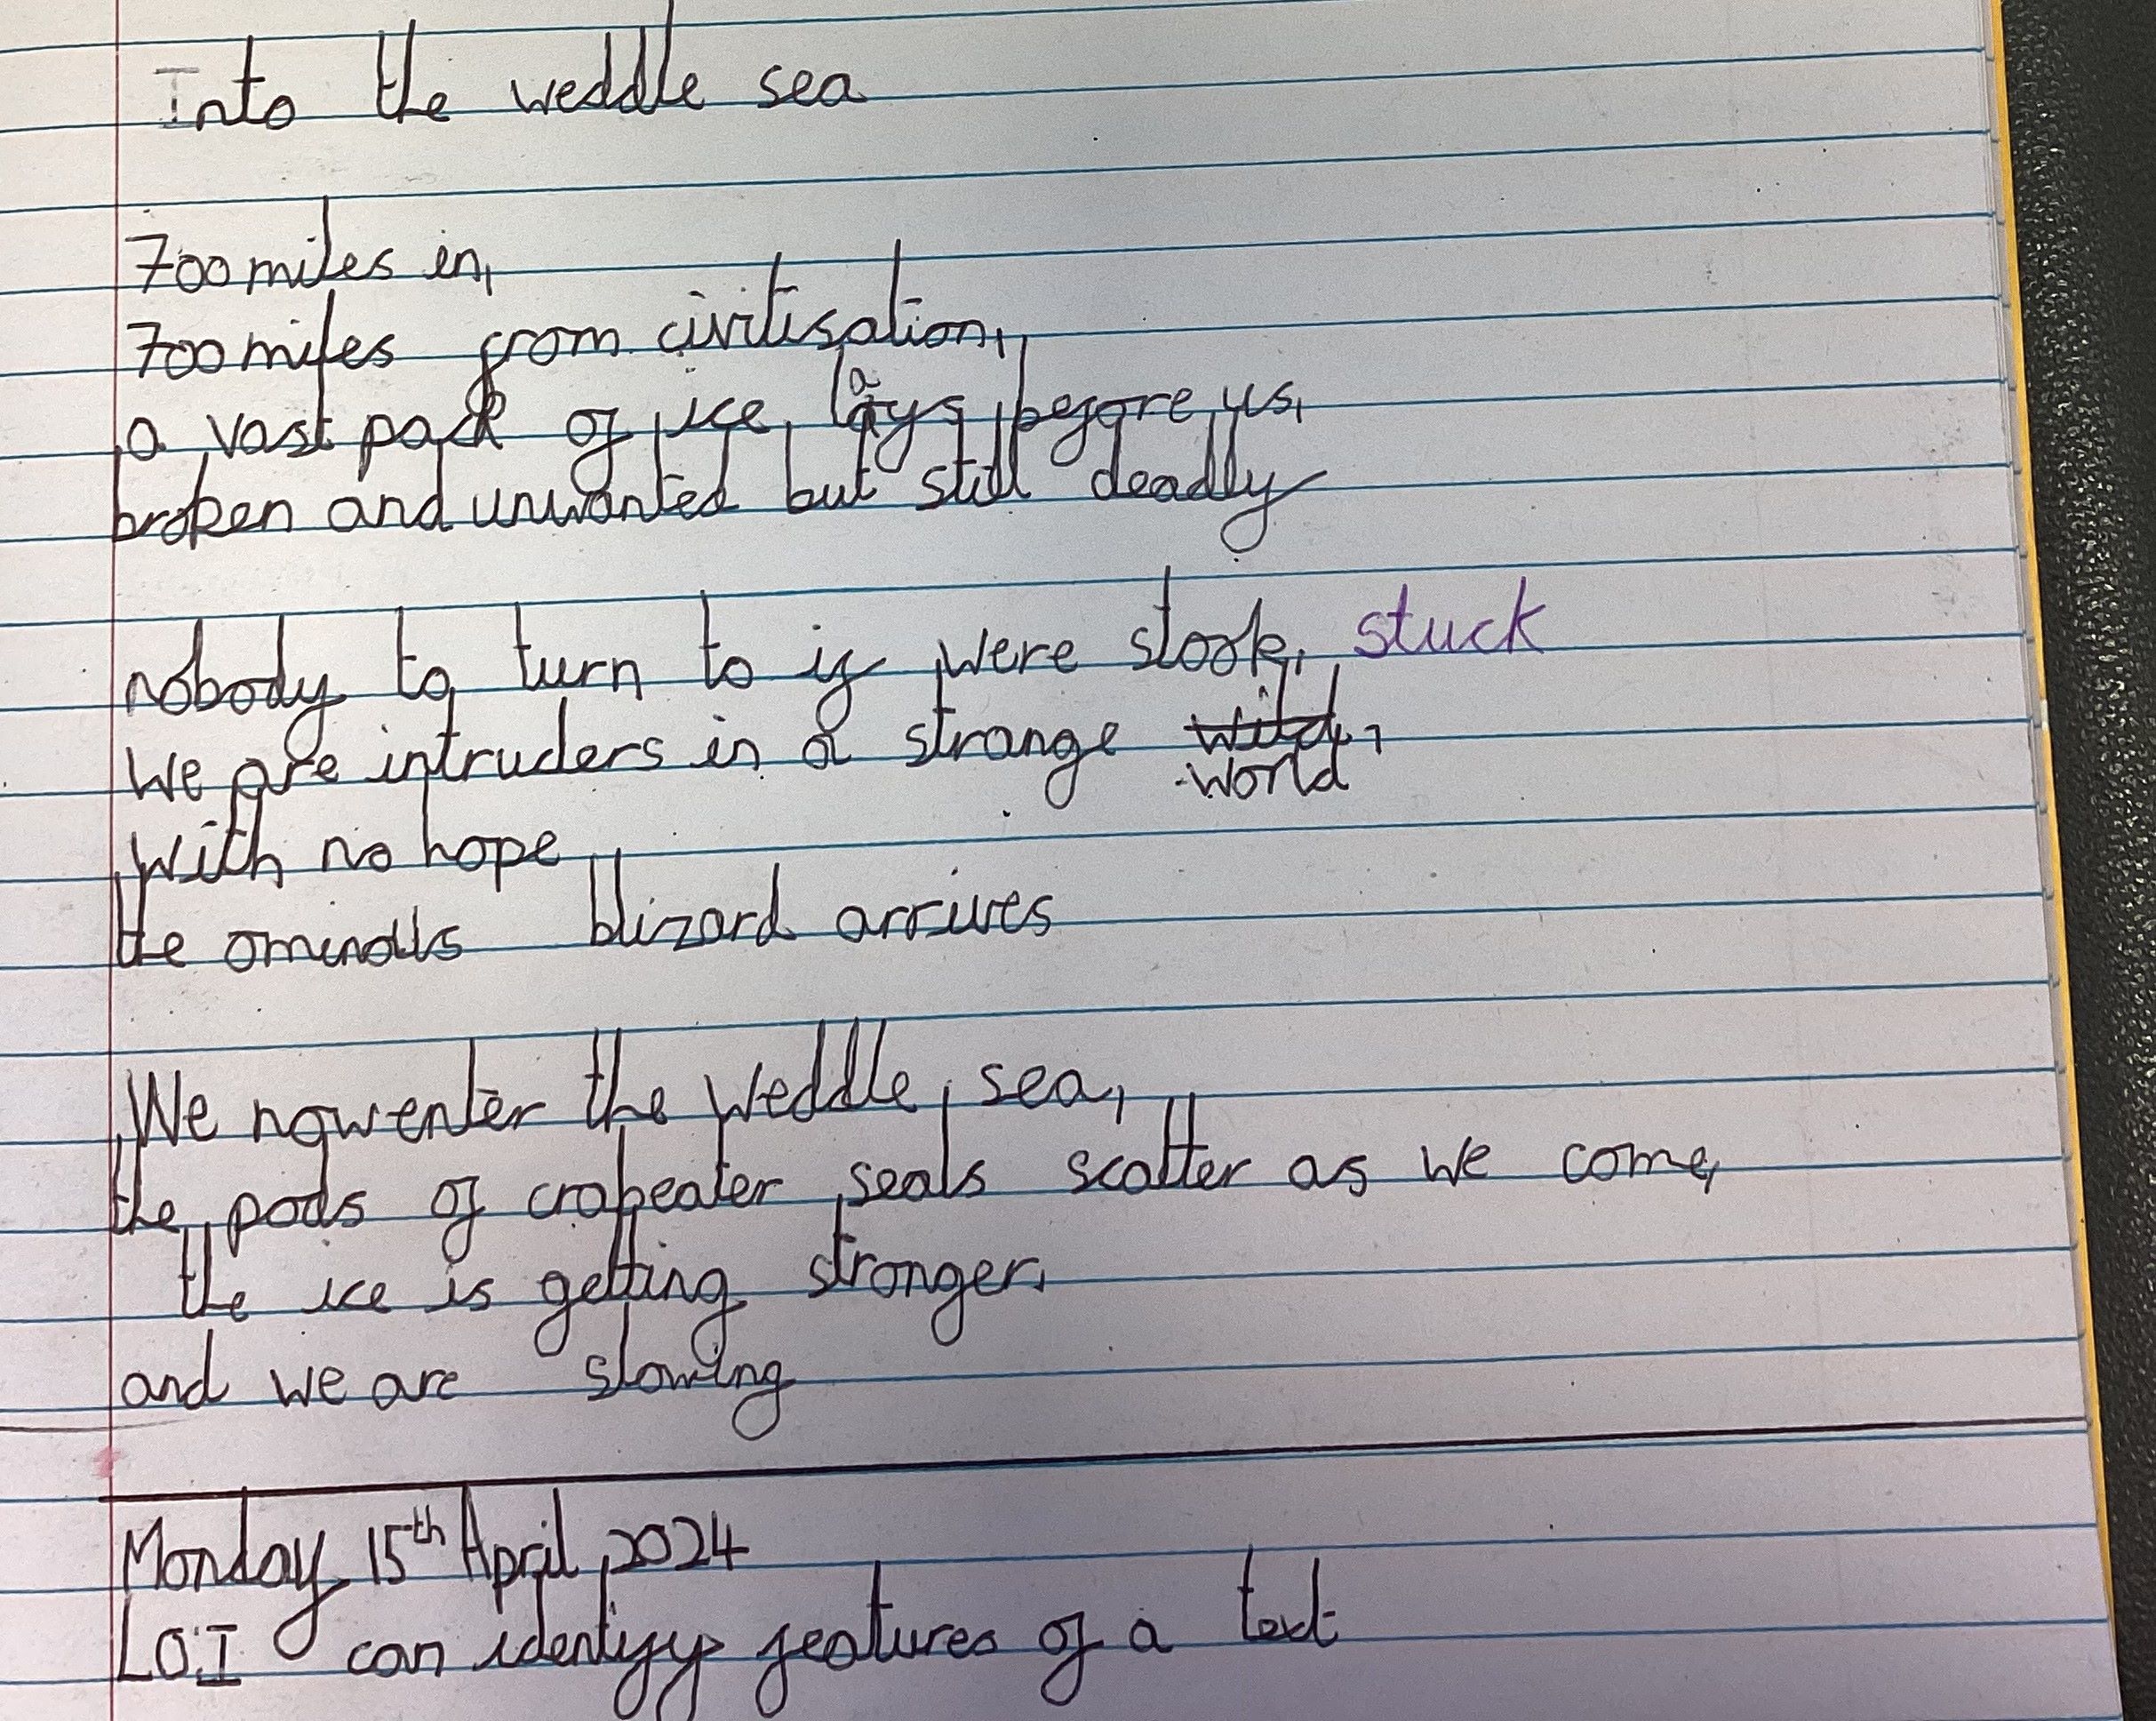 Into the weddle sea
700 miles in,
700 miles from civilisation,
a vast pack of ice lays before us,
broken and unwanted but still deadly
nobody to turn to if were stook, stuck
We are intruders in a strange wild, world
With no hope
the ominous blizard arrives
We now enter the Weddle sea,
the pods of crabeater seals scatter as we come,
the ice is getting stronger,
and we are slowing
Monday 15th April 2024
LO:I can identify features of a text